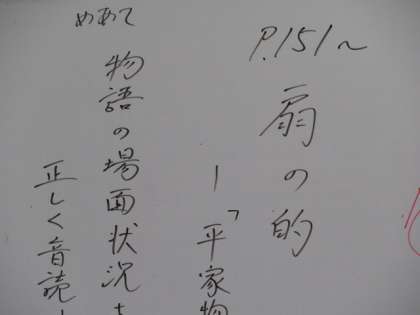 P.151〜
扇の的
ー「平家物
めあて
物語の場面状況を
正しく音読し